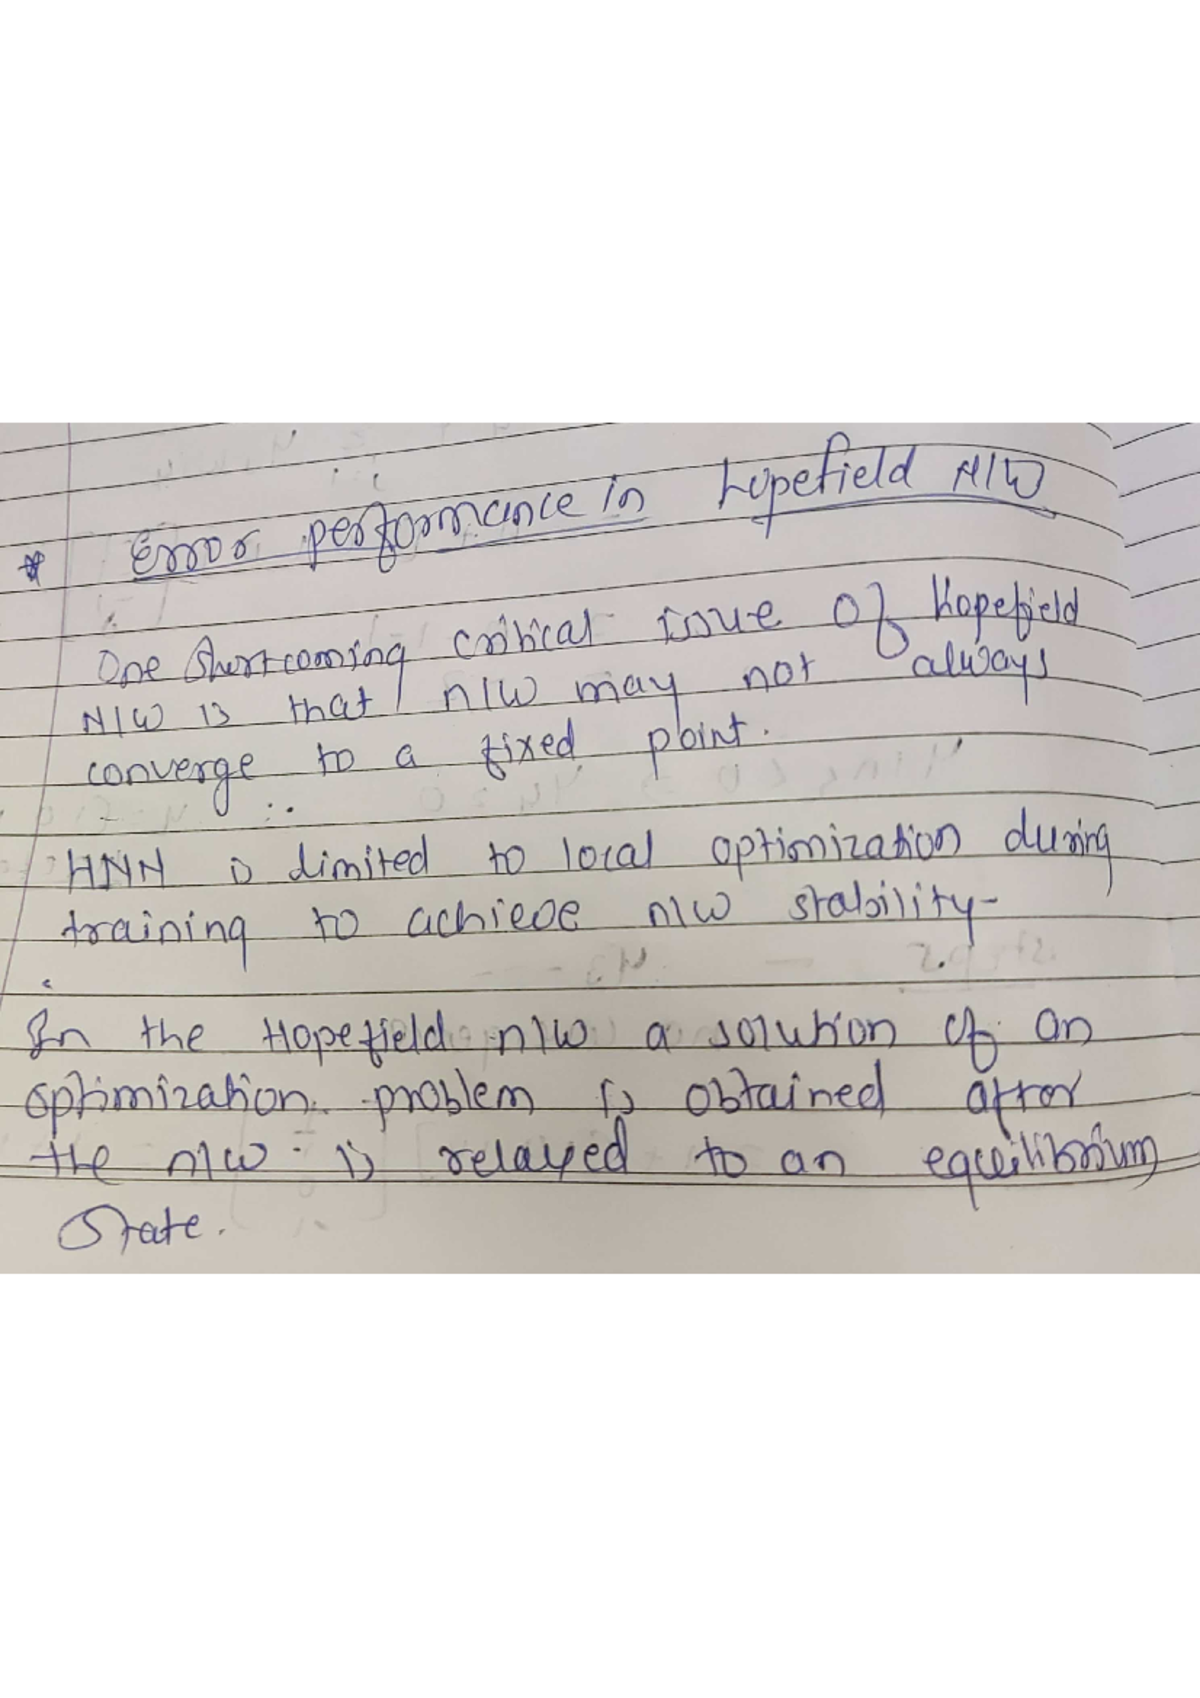 * Error performance in Hopefield N/W
One Shortcoming critical issue of Hopefield
N/W is that n/w may not always
converge to a fixed point.
HNN is limited to local optimization during
training to achieve n/w stability-
In the Hopefield n/w a solution of an
optimization problem is obtained after
the n/w is relayed to an equilibrium
State.